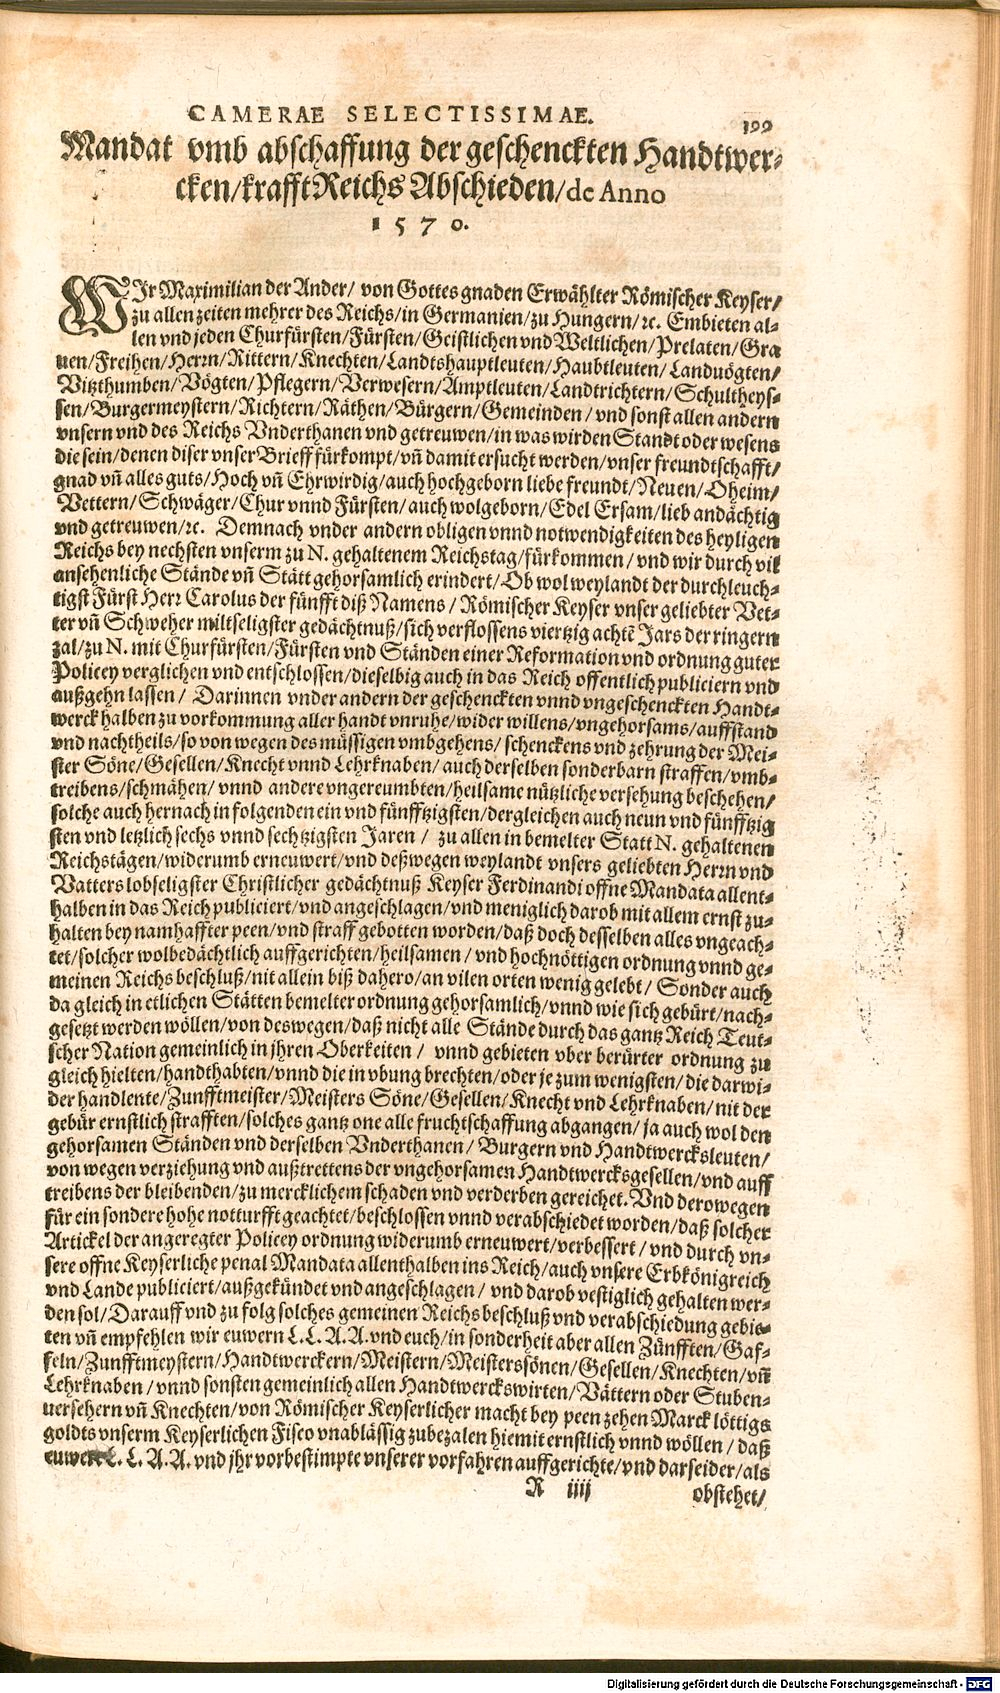 CAMERAE SELECTISSIMAE.
199
Mandat vmb abschaffung der geschenckten Handtwer-
cken/krafft Reichs Abschieden/de Anno
1570.
WIr Maximilian der Ander/ von Gottes gnaden Erwählter Römischer Keyser/
zu allen zeiten mehrer des Reichs/in Germanien/zu Hungern/ꝛc. Embieten al-
len vnd jeden Churfürsten/Fürsten/Geistlichen vnd Weltlichen/Prelaten/Gra
uen/Freihen/Herrn/Rittern/Knechten/Landtshauptleuten/Haubtleuten/Landuögten/
Vitzthumben/Vögten/Pflegern/Verwesern/Amptleuten/Landtrichtern/Schultheys-
sen/Burgermeystern/Richtern/Räthen/Bürgern/Gemeinden/vnd sonst allen andern
vnsern vnd des Reichs Vnderthanen vnd getreuwen/in was wirden Standt oder wesens
die sein/denen diser vnser Brieff fürkompt/vñ damit ersucht werden/vnser freundtschafft/
gnad vñ alles guts/Hoch vñ Ehrwirdig/auch hochgeborn liebe freundt/Neuen/Oheim/
Vettern/Schwäger/Chur vnnd Fürsten/auch wolgeborn/Edel Ersam/lieb andächtig
vnd getreuwen/ꝛc. Demnach vnder andern obligen vnnd notwendigkeiten des heyligen
Reichs bey nechsten vnserm zu N. gehaltenem Reichstag/fürkommen/vnd wir durch vil
ansehenliche Stände vñ Stätt gehorsamlich erindert/Ob wol weylandt der durchleuch-
tigst Fürst Herr Carolus der fünfft diß Namens/Römischer Keyser vnser geliebter Vet-
ter vñ Schweher miltseligster gedächtnuß/sich verflossens viertzig achtẽ Jars der ringern
zal/zu N. mit Churfürsten/Fürsten vnd Ständen einer Reformation vnd ordnung guter
Policey verglichen vnd entschlossen/dieselbig auch in das Reich offentlich publiciern vnd
außgehn lassen/ Darinnen vnder andern der geschenckten vnnd vngeschenckten Handt-
werck halben zu vorkommung aller handt vnruhe/wider willens/vngehorsams/auffstand
vnd nachtheils/so von wegen des müssigen vmbgehens/schenckens vnd zehrung der Mei-
ster Söne/Gesellen/Knecht vnnd Lehrknaben/auch derselben sonderbarn straffen/vmb-
treibens/schmähen/vnnd andere vngereumbten/heilsame nützliche versehung beschehen/
solche auch hernach in folgenden ein vnd fünfftzigsten/dergleichen auch neun vnd fünfftzig
sten vnd letzlich sechs vnnd sechtzigsten Jaren/ zu allen in bemelter Statt N. gehaltenen
Reichstägen/widerumb erneuwert/vnd deßwegen weylandt vnsers geliebten Herrn vnd
Vatters lobseligster Christlicher gedächtnuß Keyser Ferdinandi offne Mandata allent-
halben in das Reich publiciert/vnd angeschlagen/vnd meniglich darob mit allem ernst zu-
halten bey namhaffter peen/vnd straff gebotten worden/daß doch desselben alles vngeach-
tet/solcher wolbedächtlich auffgerichten/heilsamen/vnd hochnöttigen ordnung vnnd ge-
meinen Reichs beschluß/nit allein biß dahero/an vilen orten wenig gelebt/Sonder auch
da gleich in etlichen Stätten bemelter ordnung gehorsamlich/vnnd wie sich gebürt/nach-
gesetzt werden wöllen/von deswegen/daß nicht alle Stände durch das gantz Reich Teut-
scher Nation gemeinlich in jhren Oberkeiten/ vnnd gebieten vber berürter ordnung zu
gleich hielten/handthabten/vnnd die in vbung brechten/oder je zum wenigsten/die darwi-
der handlente/Zunfftmeister/Meisters Söne/Gesellen/Knecht vnd Lehrknaben/nit der
gebür ernstlich strafften/solches gantz one alle fruchtschaffung abgangen/ja auch wol den
gehorsamen Ständen vnd derselben Vnderthanen/Burgern vnd Handtwercksleuten/
von wegen verziehung vnd außtrettens der vngehorsamen Handtwercksgesellen/vnd auff
treibens der bleibenden/zu mercklichem schaden vnd verderben gereichet. Vnd derowegen
für ein sondere hohe notturfft geachtet/beschlossen vnnd verabschiedet worden/daß solcher
Artickel der angeregter Policey ordnung widerumb erneuwert/verbessert/vnd durch vn-
sere offne Keyserliche penal Mandata allenthalben ins Reich/auch vnsere Erbkönigreich
vnd Lande publiciert/außgekündet vnd angeschlagen/ vnd darob vestiglich gehalten wer-
den sol/Darauff vnd zu folg solches gemeinen Reichs beschluß vnd verabschiedung gebie-
ten vñ empfehlen wir euwern L.L. A.A. vnd euch/in sonderheit aber allen Zünfften/Gaf-
feln/Zunfftmeystern/Handtwerckern/Meistern/Meisterssönen/Gesellen/Knechten/vñ
Lehrknaben/vnnd sonsten gemeinlich allen Handtwerckswirten/Vättern oder Stuben-
uersehern vñ Knechten/von Römischer Keyserlicher macht bey peen zehen Marck löttigs
goldts vnserm Keyserlichen Fisco vnabläßig zubezalen hiemit ernstlich vnnd wöllen/daß
euwere L. L. A. A. vnd jhr vorbestimpte vnserer vorfahren auffgerichte/vnd darseider/als
R iiij
obstehet/
Digitalisierung gefördert durch die Deutsche Forschungsgemeinschaft - DFG